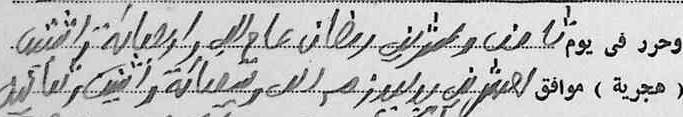 وحرر فى يوم ثامن وعشرين رمضان عام الف واربعمائة واثنتين
( هجرية ) موافق لعشرين يوليوز الف وتسعمائة واثنين وثمانين